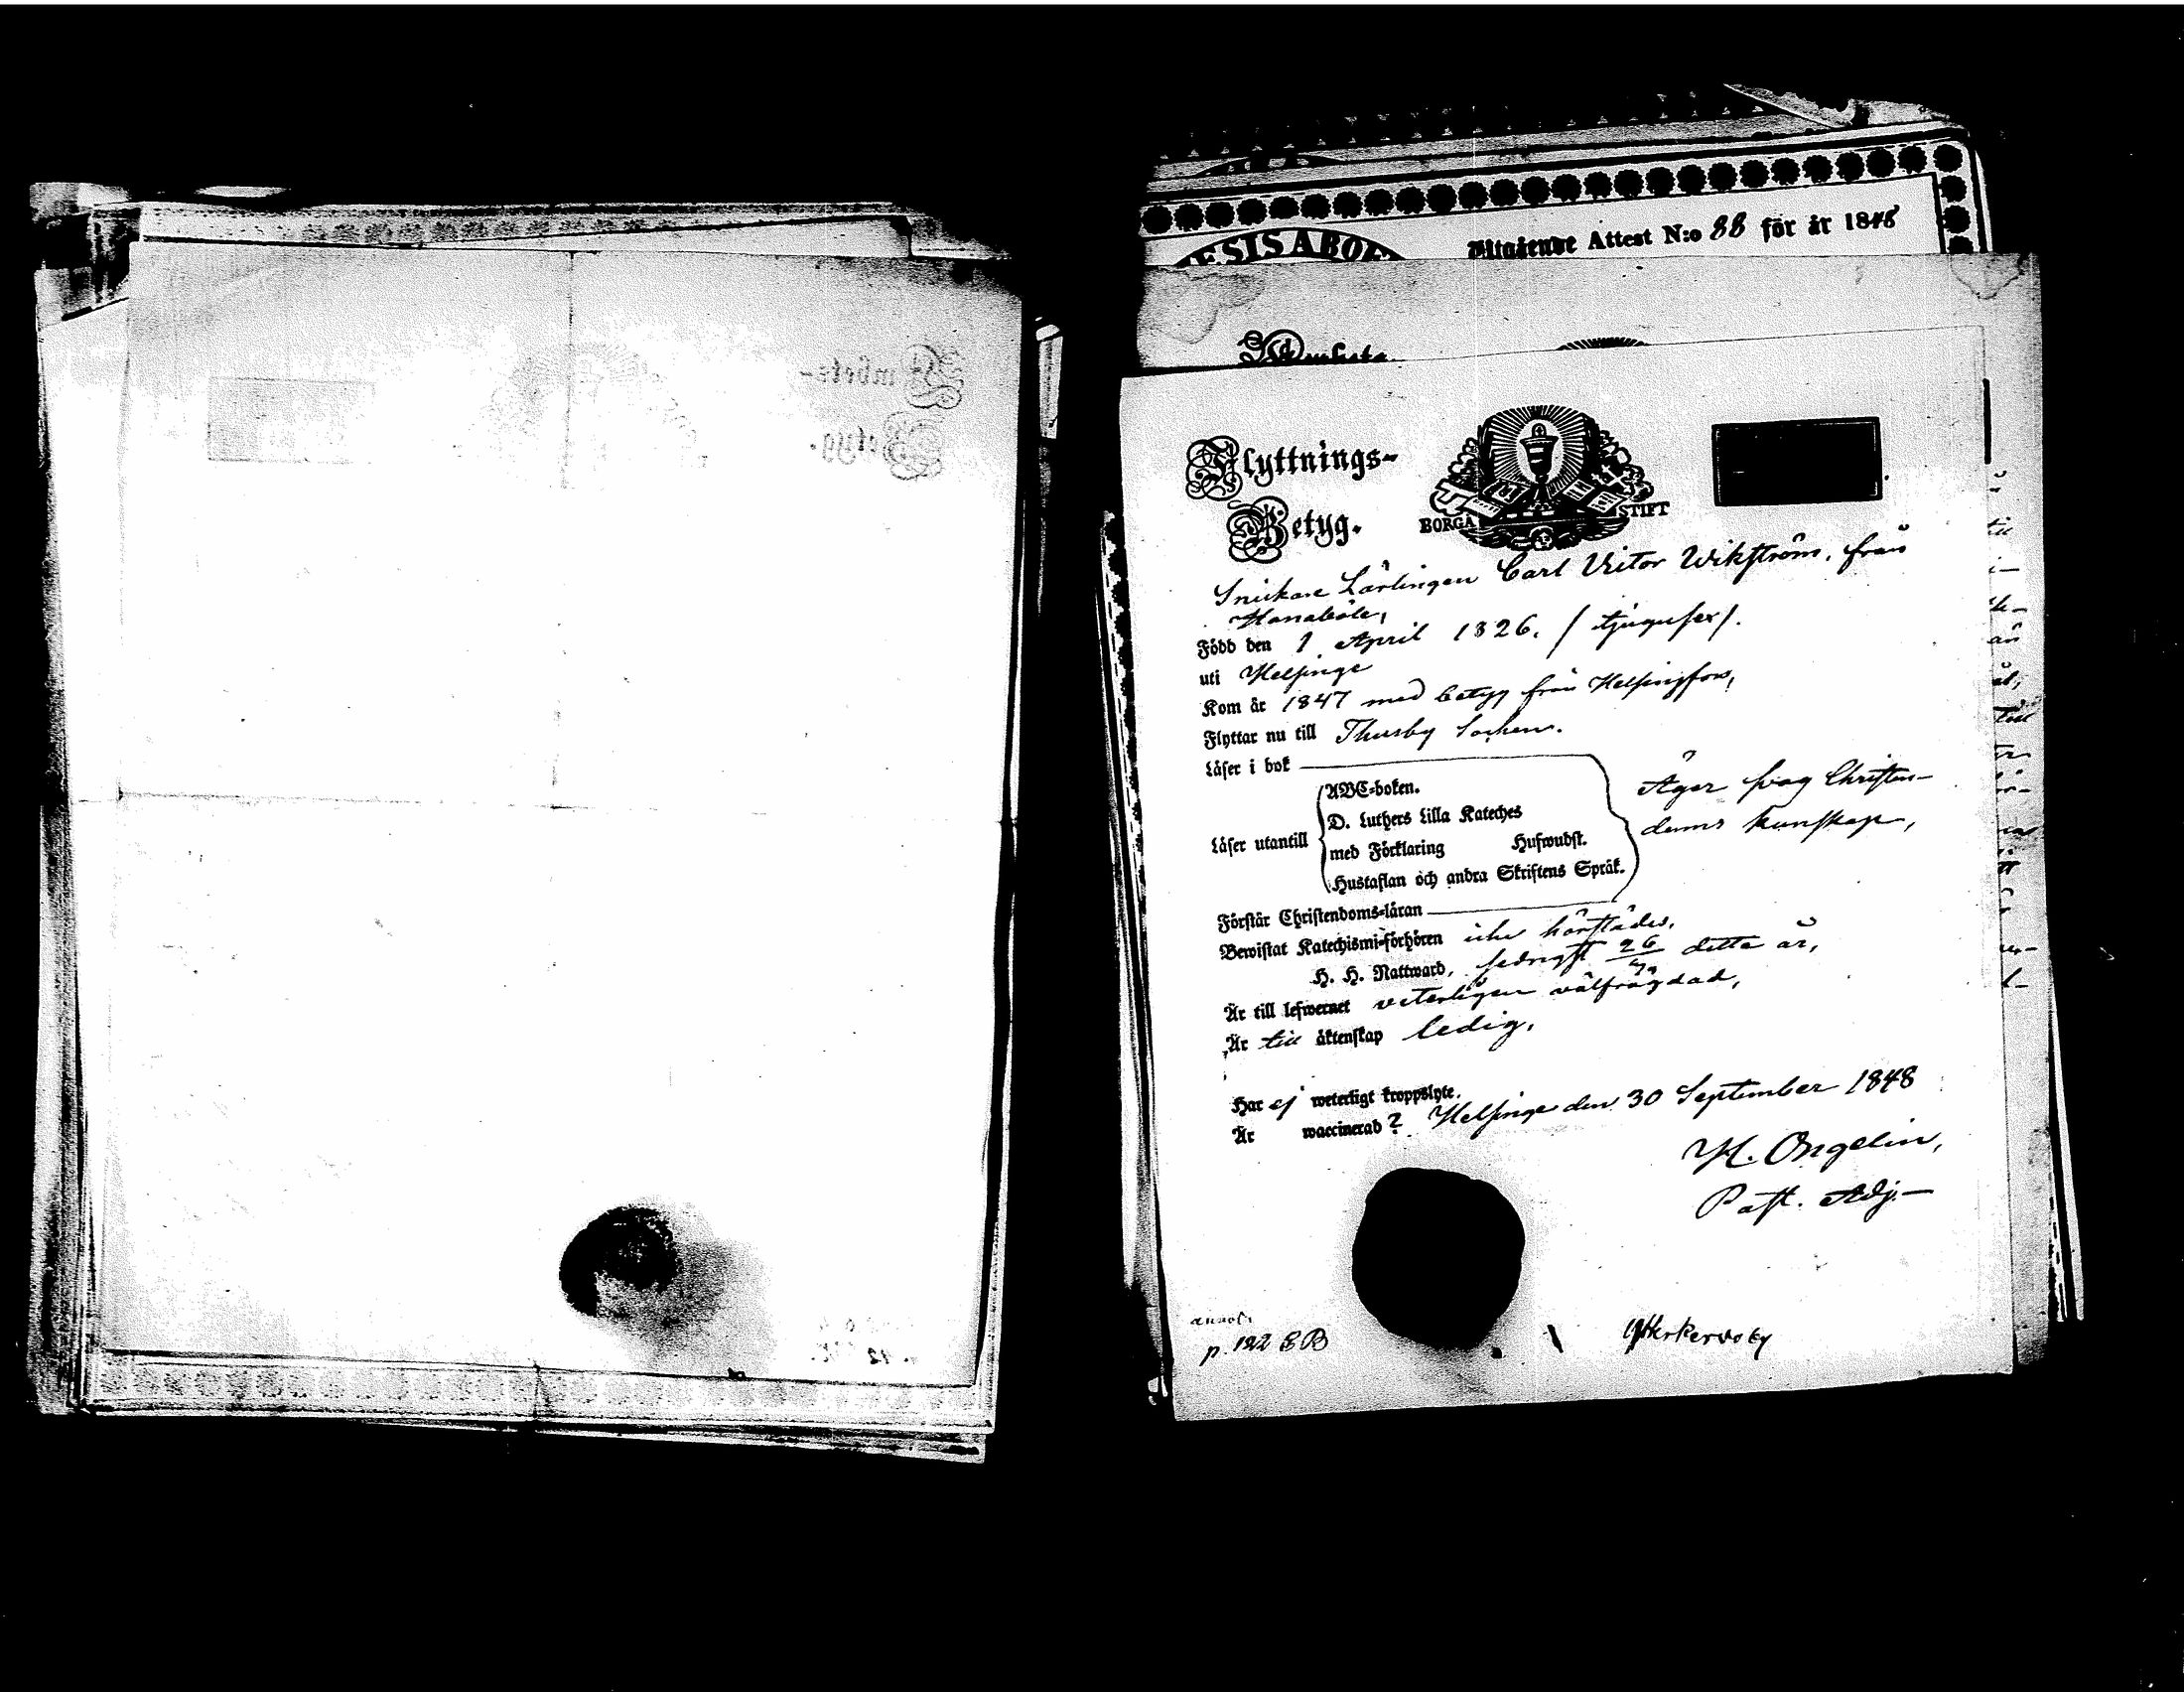 Utgående Attest N:o 88 för år 1848
Ambets-
Flyttnings-
Betyg.
BORGÅ STIFT
Snickare Lärlingen Carl Victor Wikström, från
Hanaböle,
Född den 1 April 1826. / tjugusex /.
uti Helsinge
Kom år 1847 med betyg från Helsingfors,
Flyttar nu till Thusby Socken.
Läser i bok
Äger svag Christen-
doms kunskap,
Läser utantill
ABC-boken.
D. Luthers Lilla Kateches
med Förklaring Hufwudst.
Hustaflan och andra Skriftens Språk.
Förstår Christendoms-läran
Bewistat Katechismi-förhören icke härstädes,
H. H. Nattward, sednast 26/ detta år,
Är till lefwernet veterligen välfrägdad,
Är till äktenskap ledig,
Har ej weterligt kroppslyte.
Är waccinerad? Helsinge den 30 September 1848
H. Ongelin,
Past. Adj.
p. 122 E B